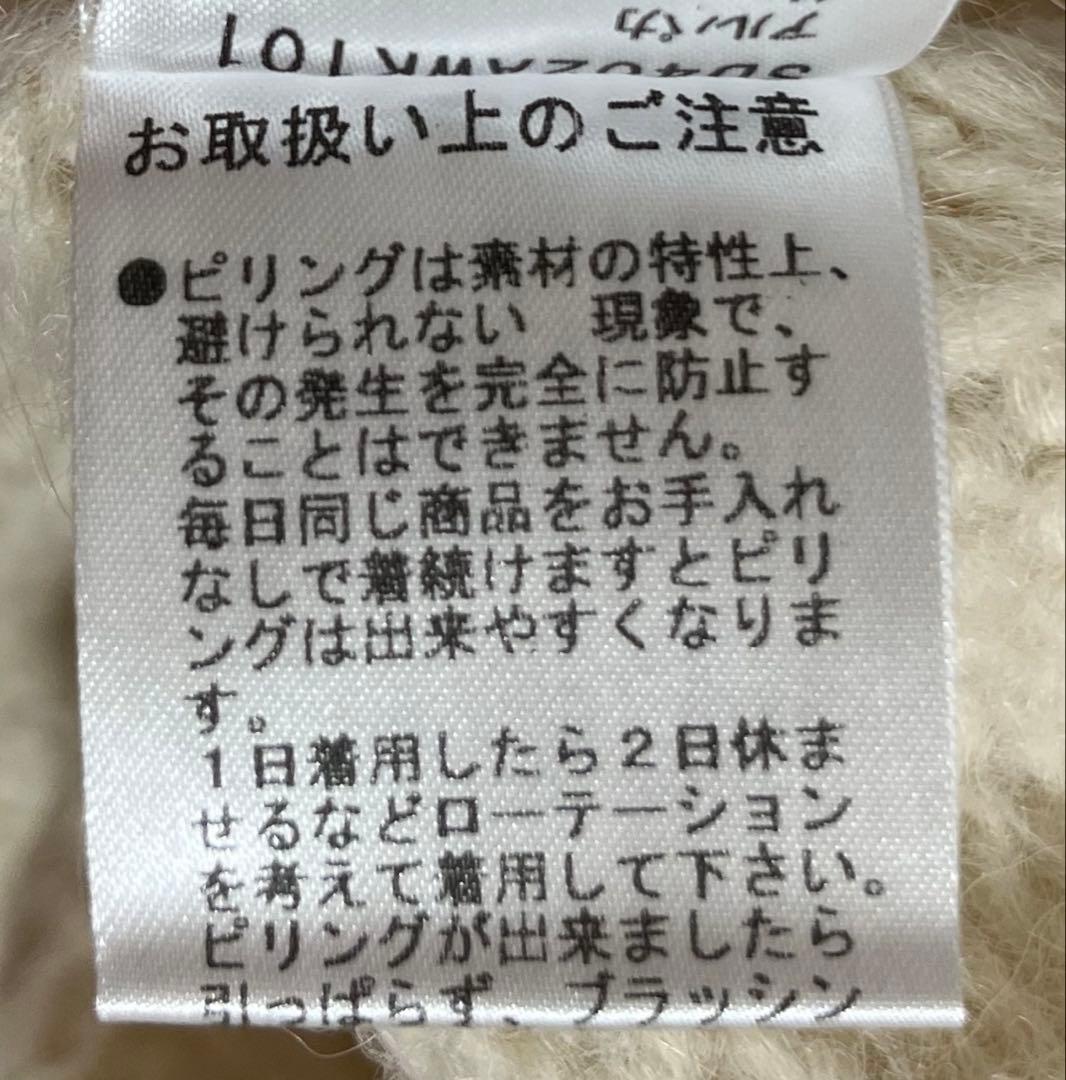 アルパカ
お取扱い上のご注意
●ピリングは素材の特性上、
避けられない　現象で、
その発生を完全に防止す
ることはできません。
毎日同じ商品をお手入れ
なしで着続けますとピリ
ングは出来やすくなりま
す。
1日着用したら2日休ま
せるなどローテーション
を考えて着用して下さい。
ピリングが出来ましたら
引っぱらず、ブラッシン